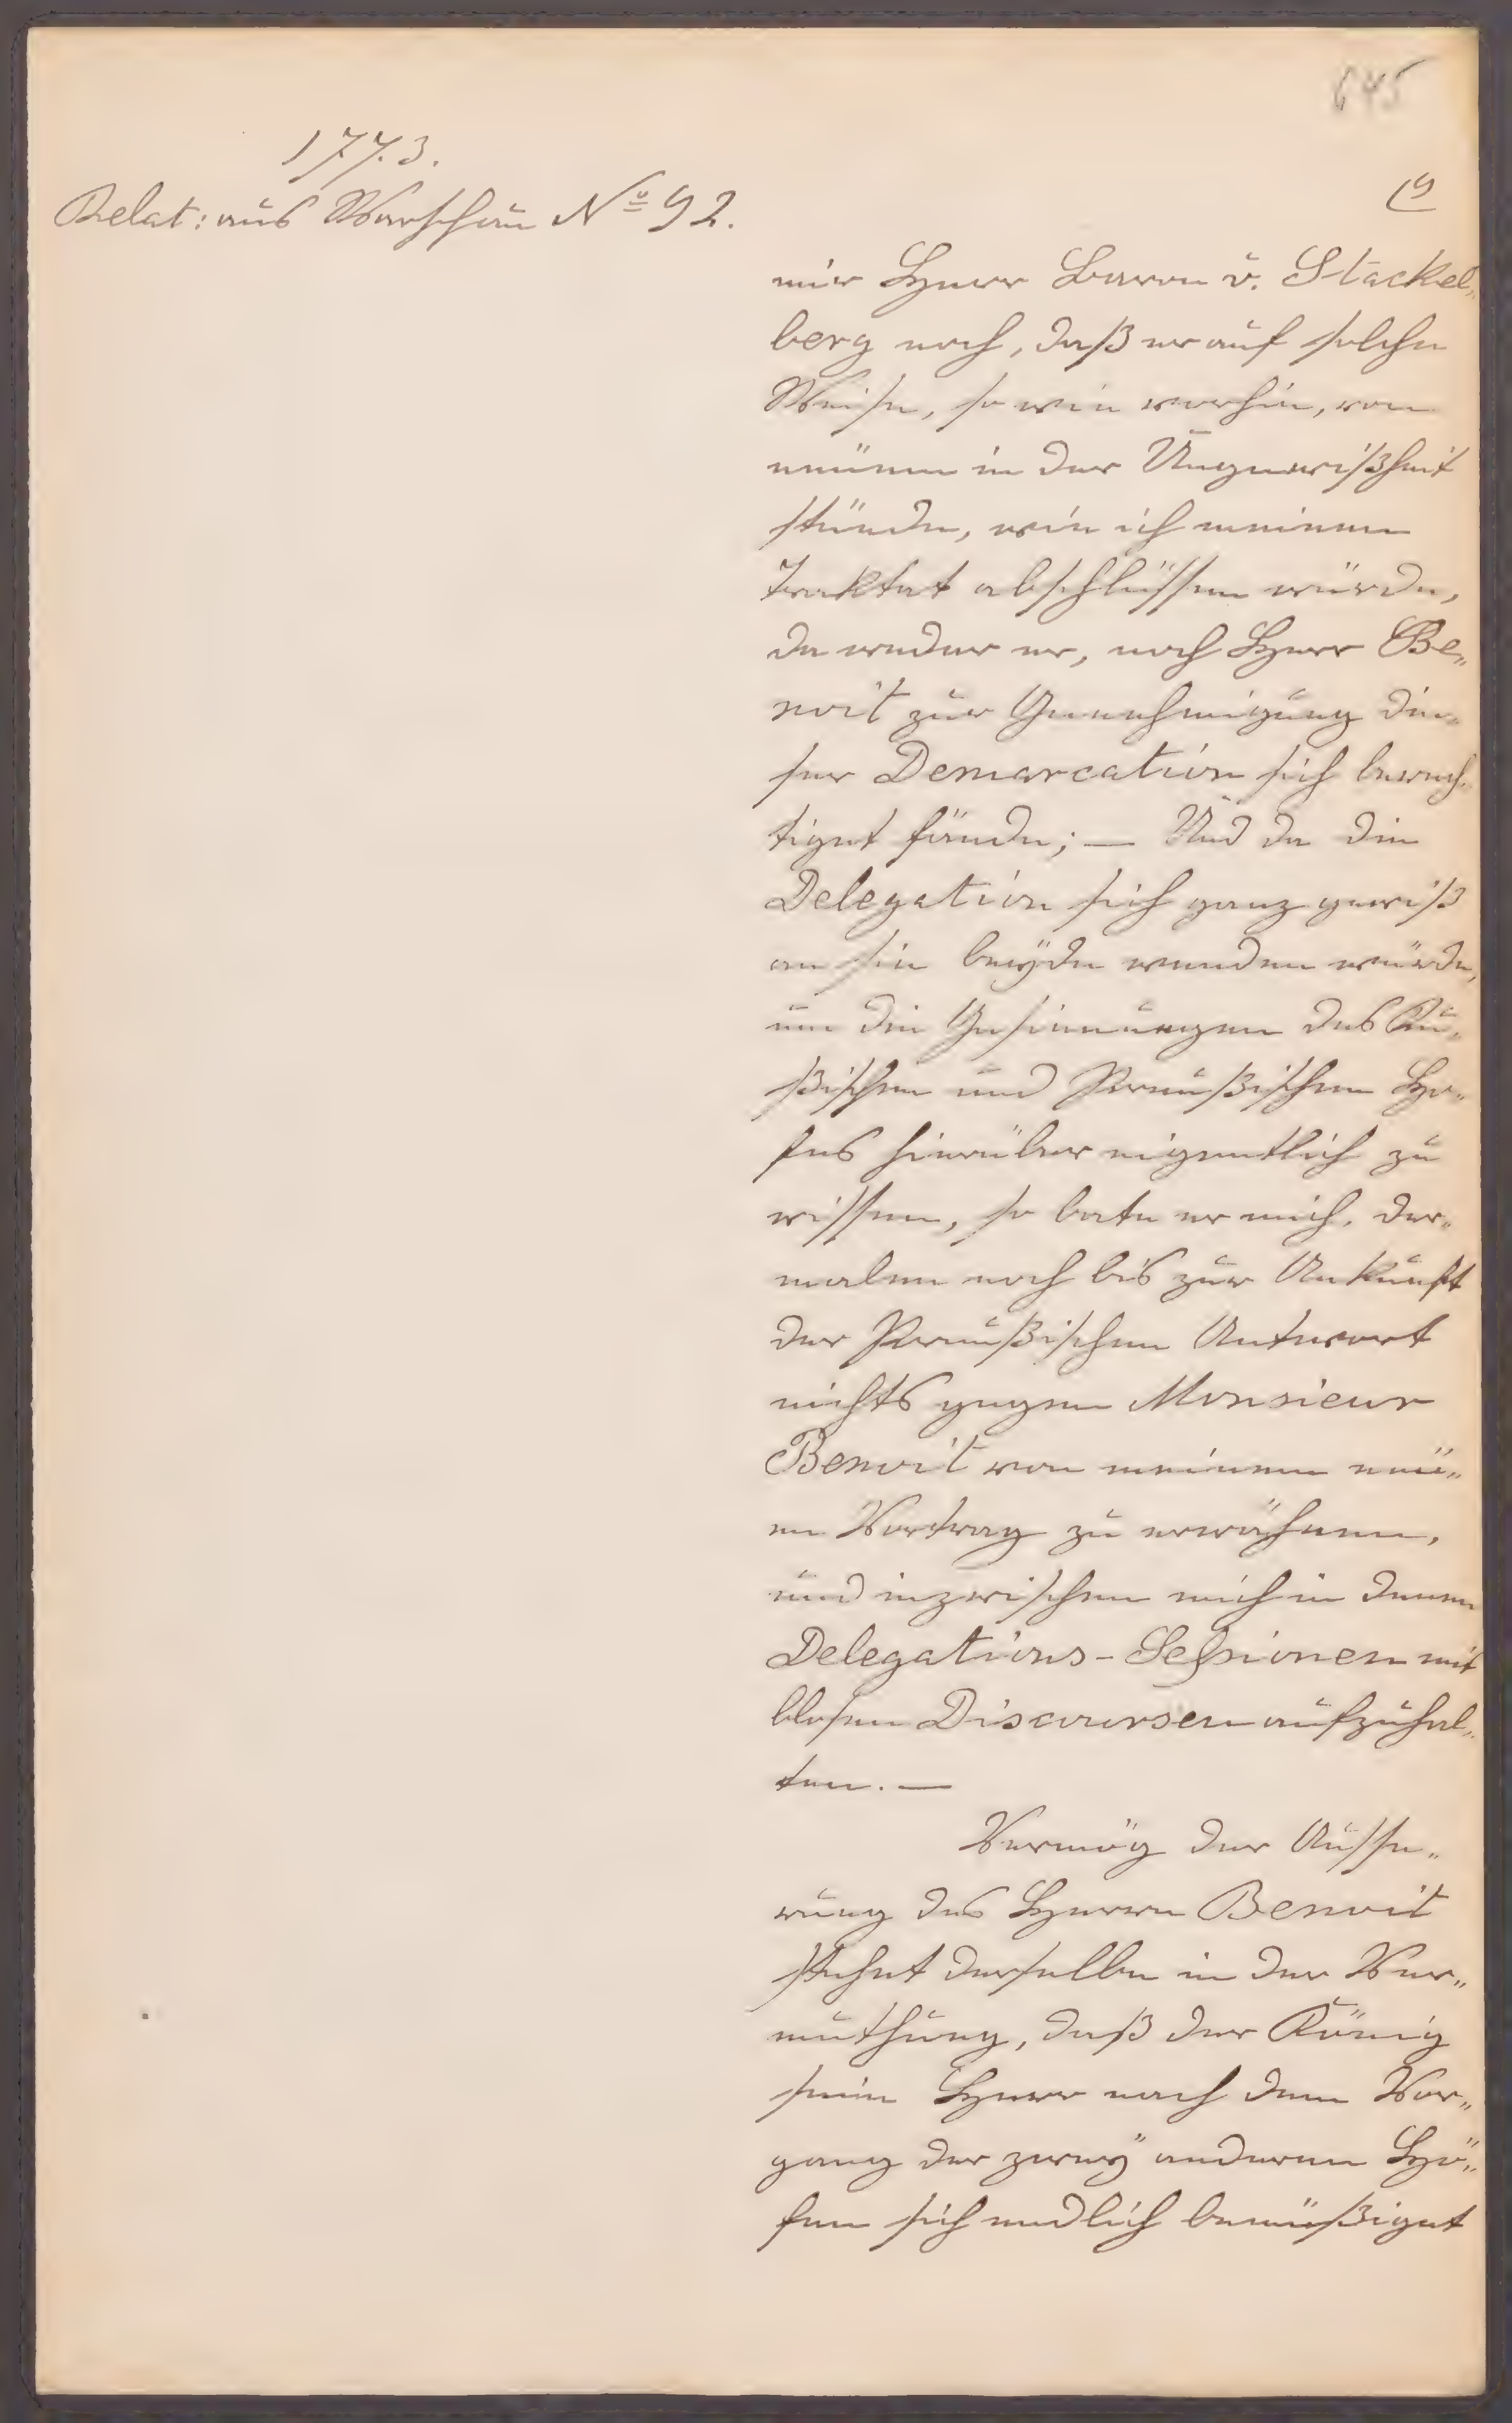 645
1773.
Relat: aus Warschau No 92.
9
mir Herr Baron v. Stackel„
berg noch, daß er auf solche
Weise, so wie vorhin, von
neüem in der Ungewißheit
stünde, wie ich meinen
Traktat abschlüssen würde,
da weder er, noch Herr Be„
noit zur Genehmigung die„
ser Demarcation sich berech„
tiget fände; — Und da die
Delegation sich ganz gewiß
an sie beÿde wenden würde,
um die Gesinnungen des Ru„
ßischen und Preußischen Ho„
fes hierüber eigentlich zu
wissen, so bate er mich, der„
malen noch bis zur Ankunft
der Preußischen Antwort
nichts gegen Monsieur
Benoit von meinem neü„
en Vortrag zu erwähnen,
und inzwischen mich in denen
Delegations-Sessionen mit
blosen Discoursen aufzuhal„
ten. —
Vermög der Äusse„
rung des Herrn Benoit
stehet derselbe in der Ver„
muthung, daß der König
sein Herr nach dem Vor„
gang der zweÿ anderen Hö„
fen sich endlich bemüßiget